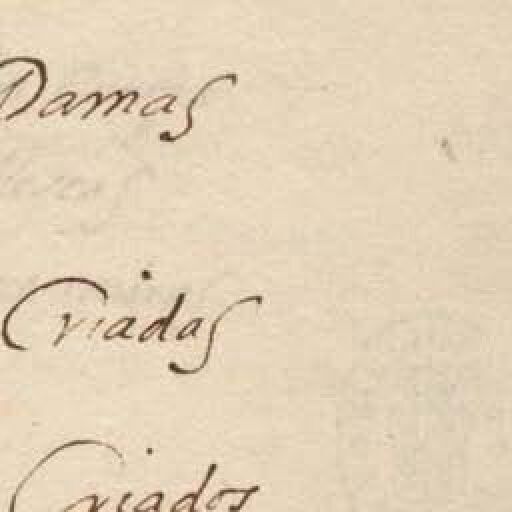 Damas
Criadas
Criados